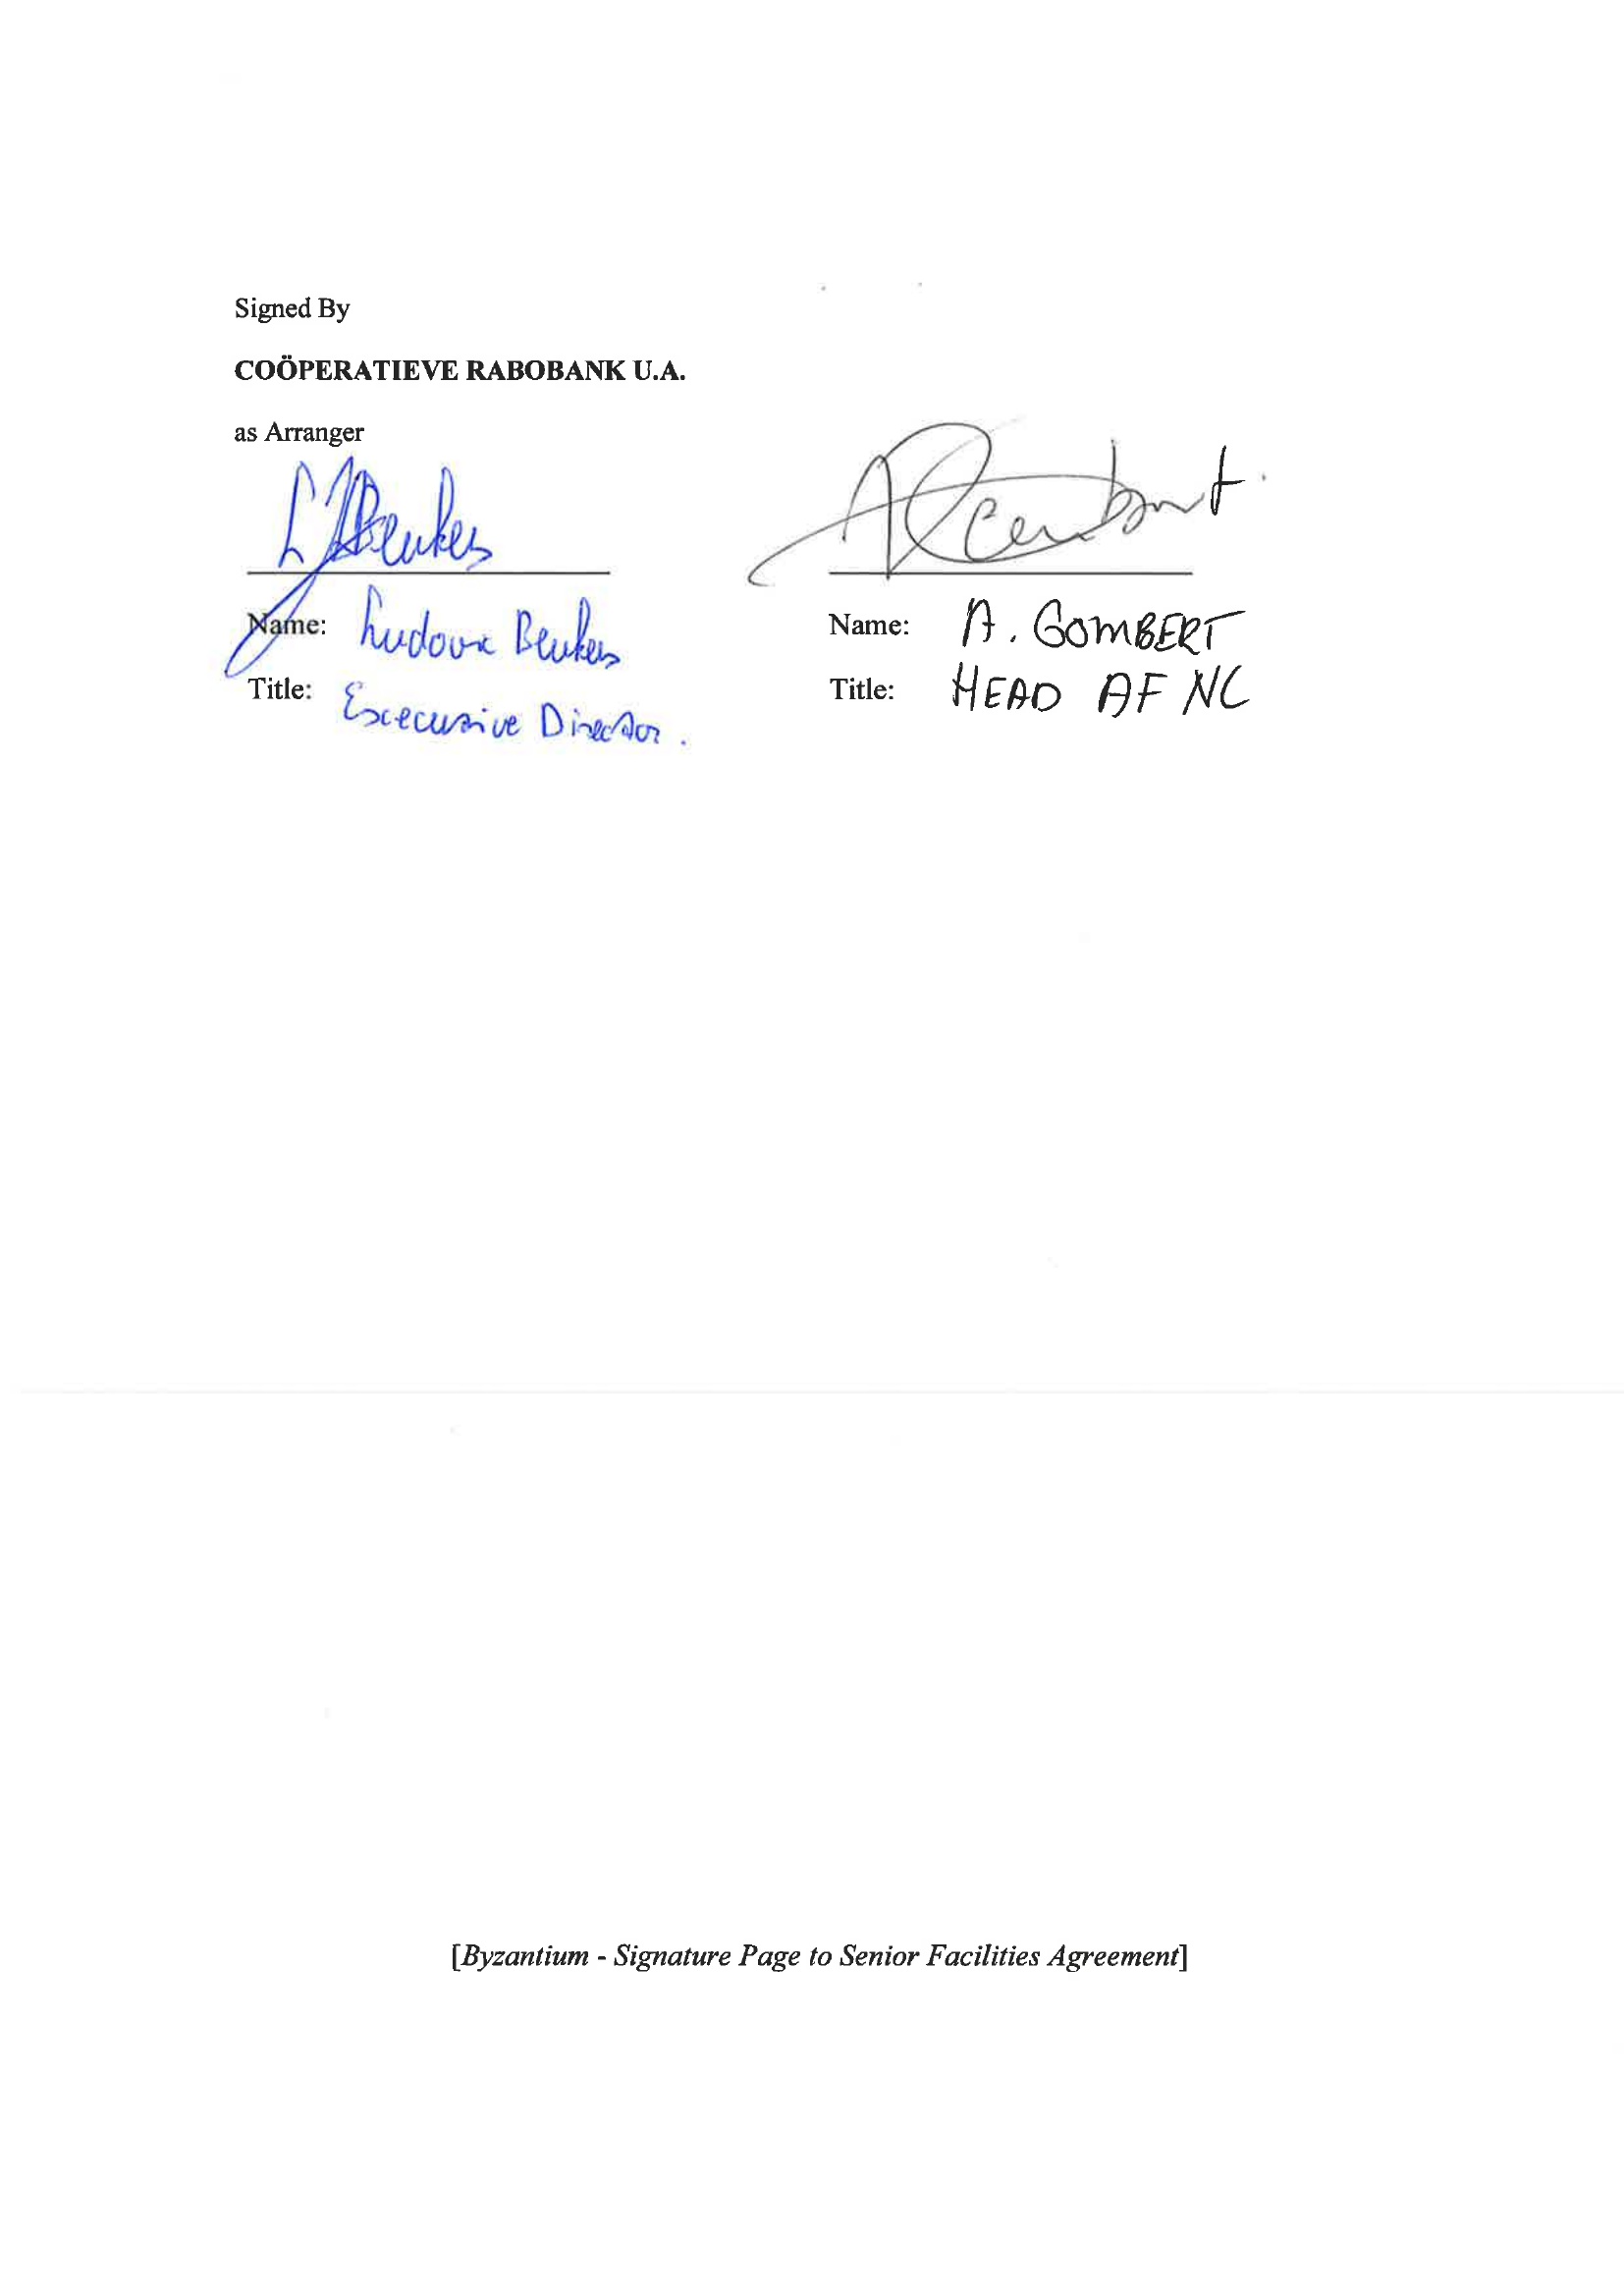 Signed By
COÖPERATIEVE RABOBANK U.A.
as Arranger
Name: Ludovic Beukers
Title: Executive Director.
Name: A. GOMBERT
Title: HEAD AF NC
[Byzantium - Signature Page to Senior Facilities Agreement]